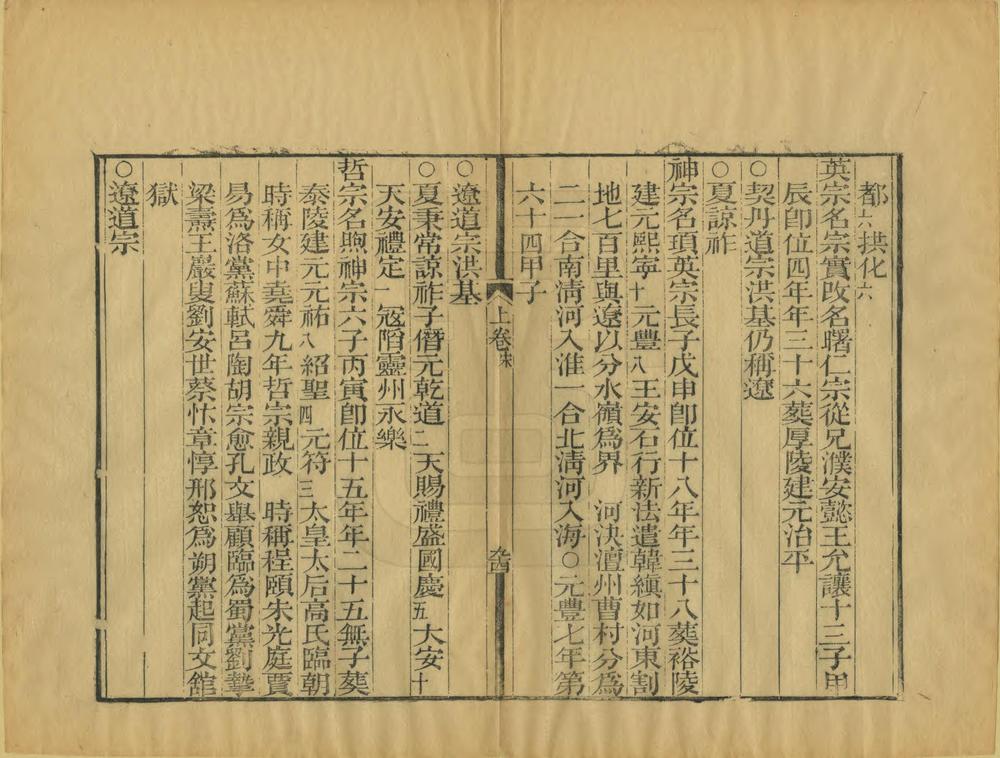 都六拱化六
英宗名宗實改名曙仁宗從兄濮安懿王允讓十三子甲
辰卽位四年年三十六葬厚陵建元治平
○契丹道宗洪基仍稱遼
○夏諒祚
神宗名頊英宗長子戊申卽位十八年年三十八葬裕陵
建元熙寧十元豐八王安石行新法遣韓縝如河東割
地七百里與遼以分水嶺爲界 河決澶州曹村分爲
二一合南淸河入淮一合北淸河入海○元豐七年第
六十四甲子
上卷末
九四
○遼道宗洪基
○夏秉常諒祚子僭元乾道二天賜禮盛國慶五大安十
天安禮定一寇陷靈州永樂
哲宗名煦神宗六子丙寅卽位十五年年二十五無子葬
泰陵建元元祐八紹聖四元符三太皇太后高氏臨朝
時稱女中堯舜九年哲宗親政 時稱程頤朱光庭賈
易爲洛黨蘇軾呂陶胡宗愈孔文舉顧臨爲蜀黨劉摯
梁燾王巖叟劉安世蔡忭章惇邢恕爲朔黨起同文館
獄
○遼道宗